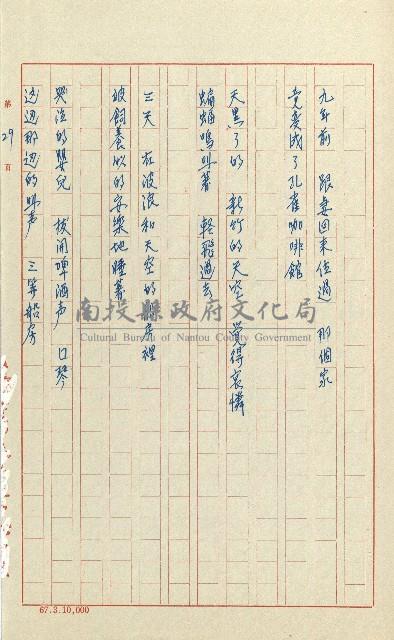 九年前 跟妻回来住過 那個家
竟变成了孔雀咖啡館
天黑了的 新竹的天空 覚得哀憐
蝙蝠鳴叫著 輕飛過去
三天 在波浪和天空的船房裡
被飼養似的安樂地睡著
哭泣的嬰兒 拔開啤酒声 口琴
這边那边的鼾声 三等船房
第 29 頁
南投縣政府文化局
Cultural Bureau of Nantou County Government
67.3.10,000